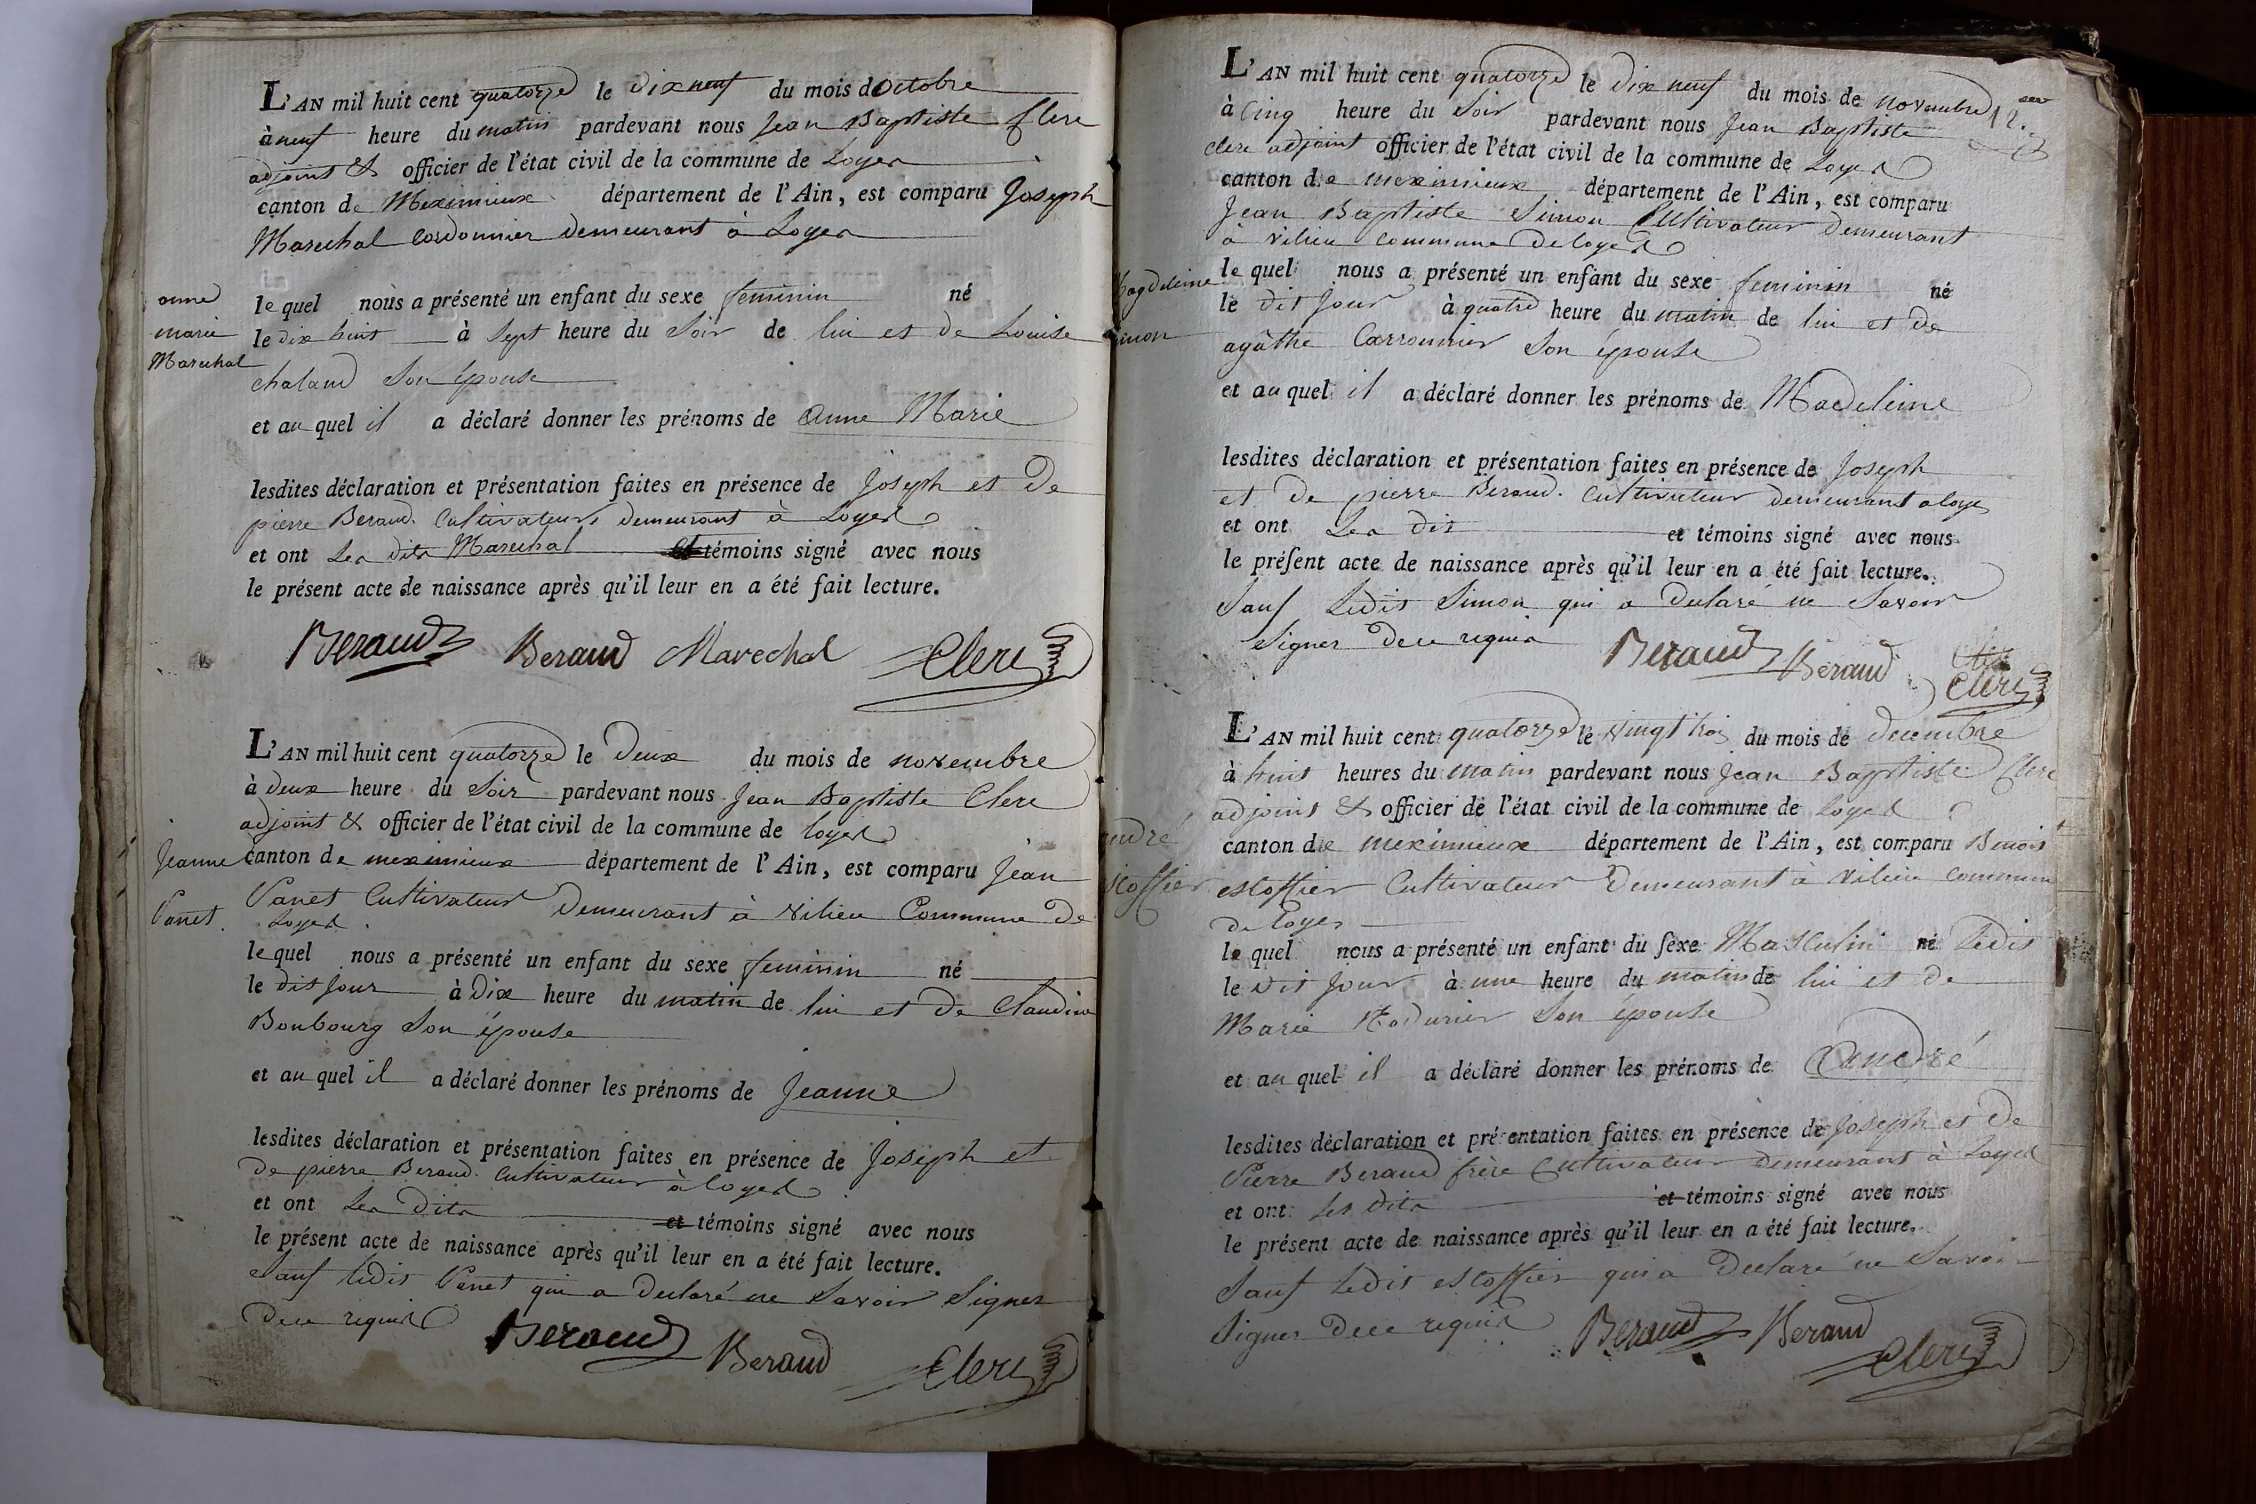 L'AN mil huit cent quatorze le Dix neuf du mois d'octobre
à neuf heure du matin pardevant nous Jean Baptiste Clere
adjoint & officier de l'état civil de la commune de Loyes
canton de Meximieux département de l'Ain, est comparu Joseph
Marechal Cordonnier demeurant à Loyes
anne
marie
Marechal
le quel nous a présenté un enfant du sexe feminin né
le dix huit à Sept heure du Soir de lui et de Louise
chaland Son épouse
et au quel il a déclaré donner les prénoms de Anne Marie
lesdites déclaration et présentation faites en présence de Joseph et De
pierre Beraud Cultivateurs demeurant à Loyes
et ont Les dits Marechal et témoins signé avec nous
le présent acte de naissance après qu'il leur en a été fait lecture.
Beraud Beraud Marechal Clere
L'AN mil huit cent quatorze le Deux du mois de novembre
à deux heure du Soir pardevant nous Jean Baptiste Clere
adjoint & officier de l'état civil de la commune de loyes
Jeanne
Panet
canton de meximieux département de l'Ain, est comparu Jean
Panet Cultivateur Demeurant à Vilieu Commune De
Loyes
le quel nous a présenté un enfant du sexe feminin né
le dit Jour à Dix heure du matin de lui et De Claudine
Bonbourg Son épouse
et au quel il a déclaré donner les prénoms de Jeanne
lesdites déclaration et présentation faites en présence de Joseph et
De pierre Beraud Cultivateur à loyes
et ont Les Dits et témoins signé avec nous
le présent acte de naissance après qu'il leur en a été fait lecture.
Sauf ledit Panet qui a Declaré ne Savoir Signer
De ce requis
Beraud Beraud Clere
L'AN mil huit cent quatorze le Dix neuf du mois de novembre
12.
à Cinq heure du Soir pardevant nous Jean Baptiste
Clere adjoint officier de l'état civil de la commune de Loyes
canton de meximieux département de l'Ain, est comparu
Jean Baptiste Simon Cultivateur Demeurant
à Vilieu Commune De loyes
Magdeleine
Simon
le quel nous a présenté un enfant du sexe feminin né
le dit Jour à quatre heure du matin de lui et De
agâthe Carronnier Son épouse
et au quel il a déclaré donner les prénoms de Madeleine
lesdites déclaration et présentation faites en présence de Joseph
et De pierre Beraud Cultivateur demeurant a loyes
et ont Les dit et témoins signé avec nous
le préſent acte de naissance après qu'il leur en a été fait lecture.
Sauf Ledit Simon qui a Declaré ne Savoir
Signer De ce requis
Beraud Beraud Clere
L'AN mil huit cent quatorze le vingt trois du mois de decembre
à huit heures du matin pardevant nous Jean Baptiste Clere
adjoint & officier de l'état civil de la commune de Loyes
andré
estoffier
canton de meximieux département de l'Ain, est comparu Benoit
estoffier Cultivateur Demeurant à Vilieu commune
de Loyes
le quel nous a présenté un enfant du ſexe Masculin né ledit
le dit Jour à une heure du matin de lui et De
Marie Son épouse
et au quel il a déclaré donner les prénoms de André
lesdites déclaration et présentation faites en présence de Joseph et De
Pierre Beraud frère Cultivateur Demeurant à Loyes
et ont Les dits et témoins signé avec nous
le présent acte de naissance après qu'il leur en a été fait lecture.
Sauf ledit estoffier qui a Declaré ne Savoir
Signer De ce requis
Beraud Beraud Clere